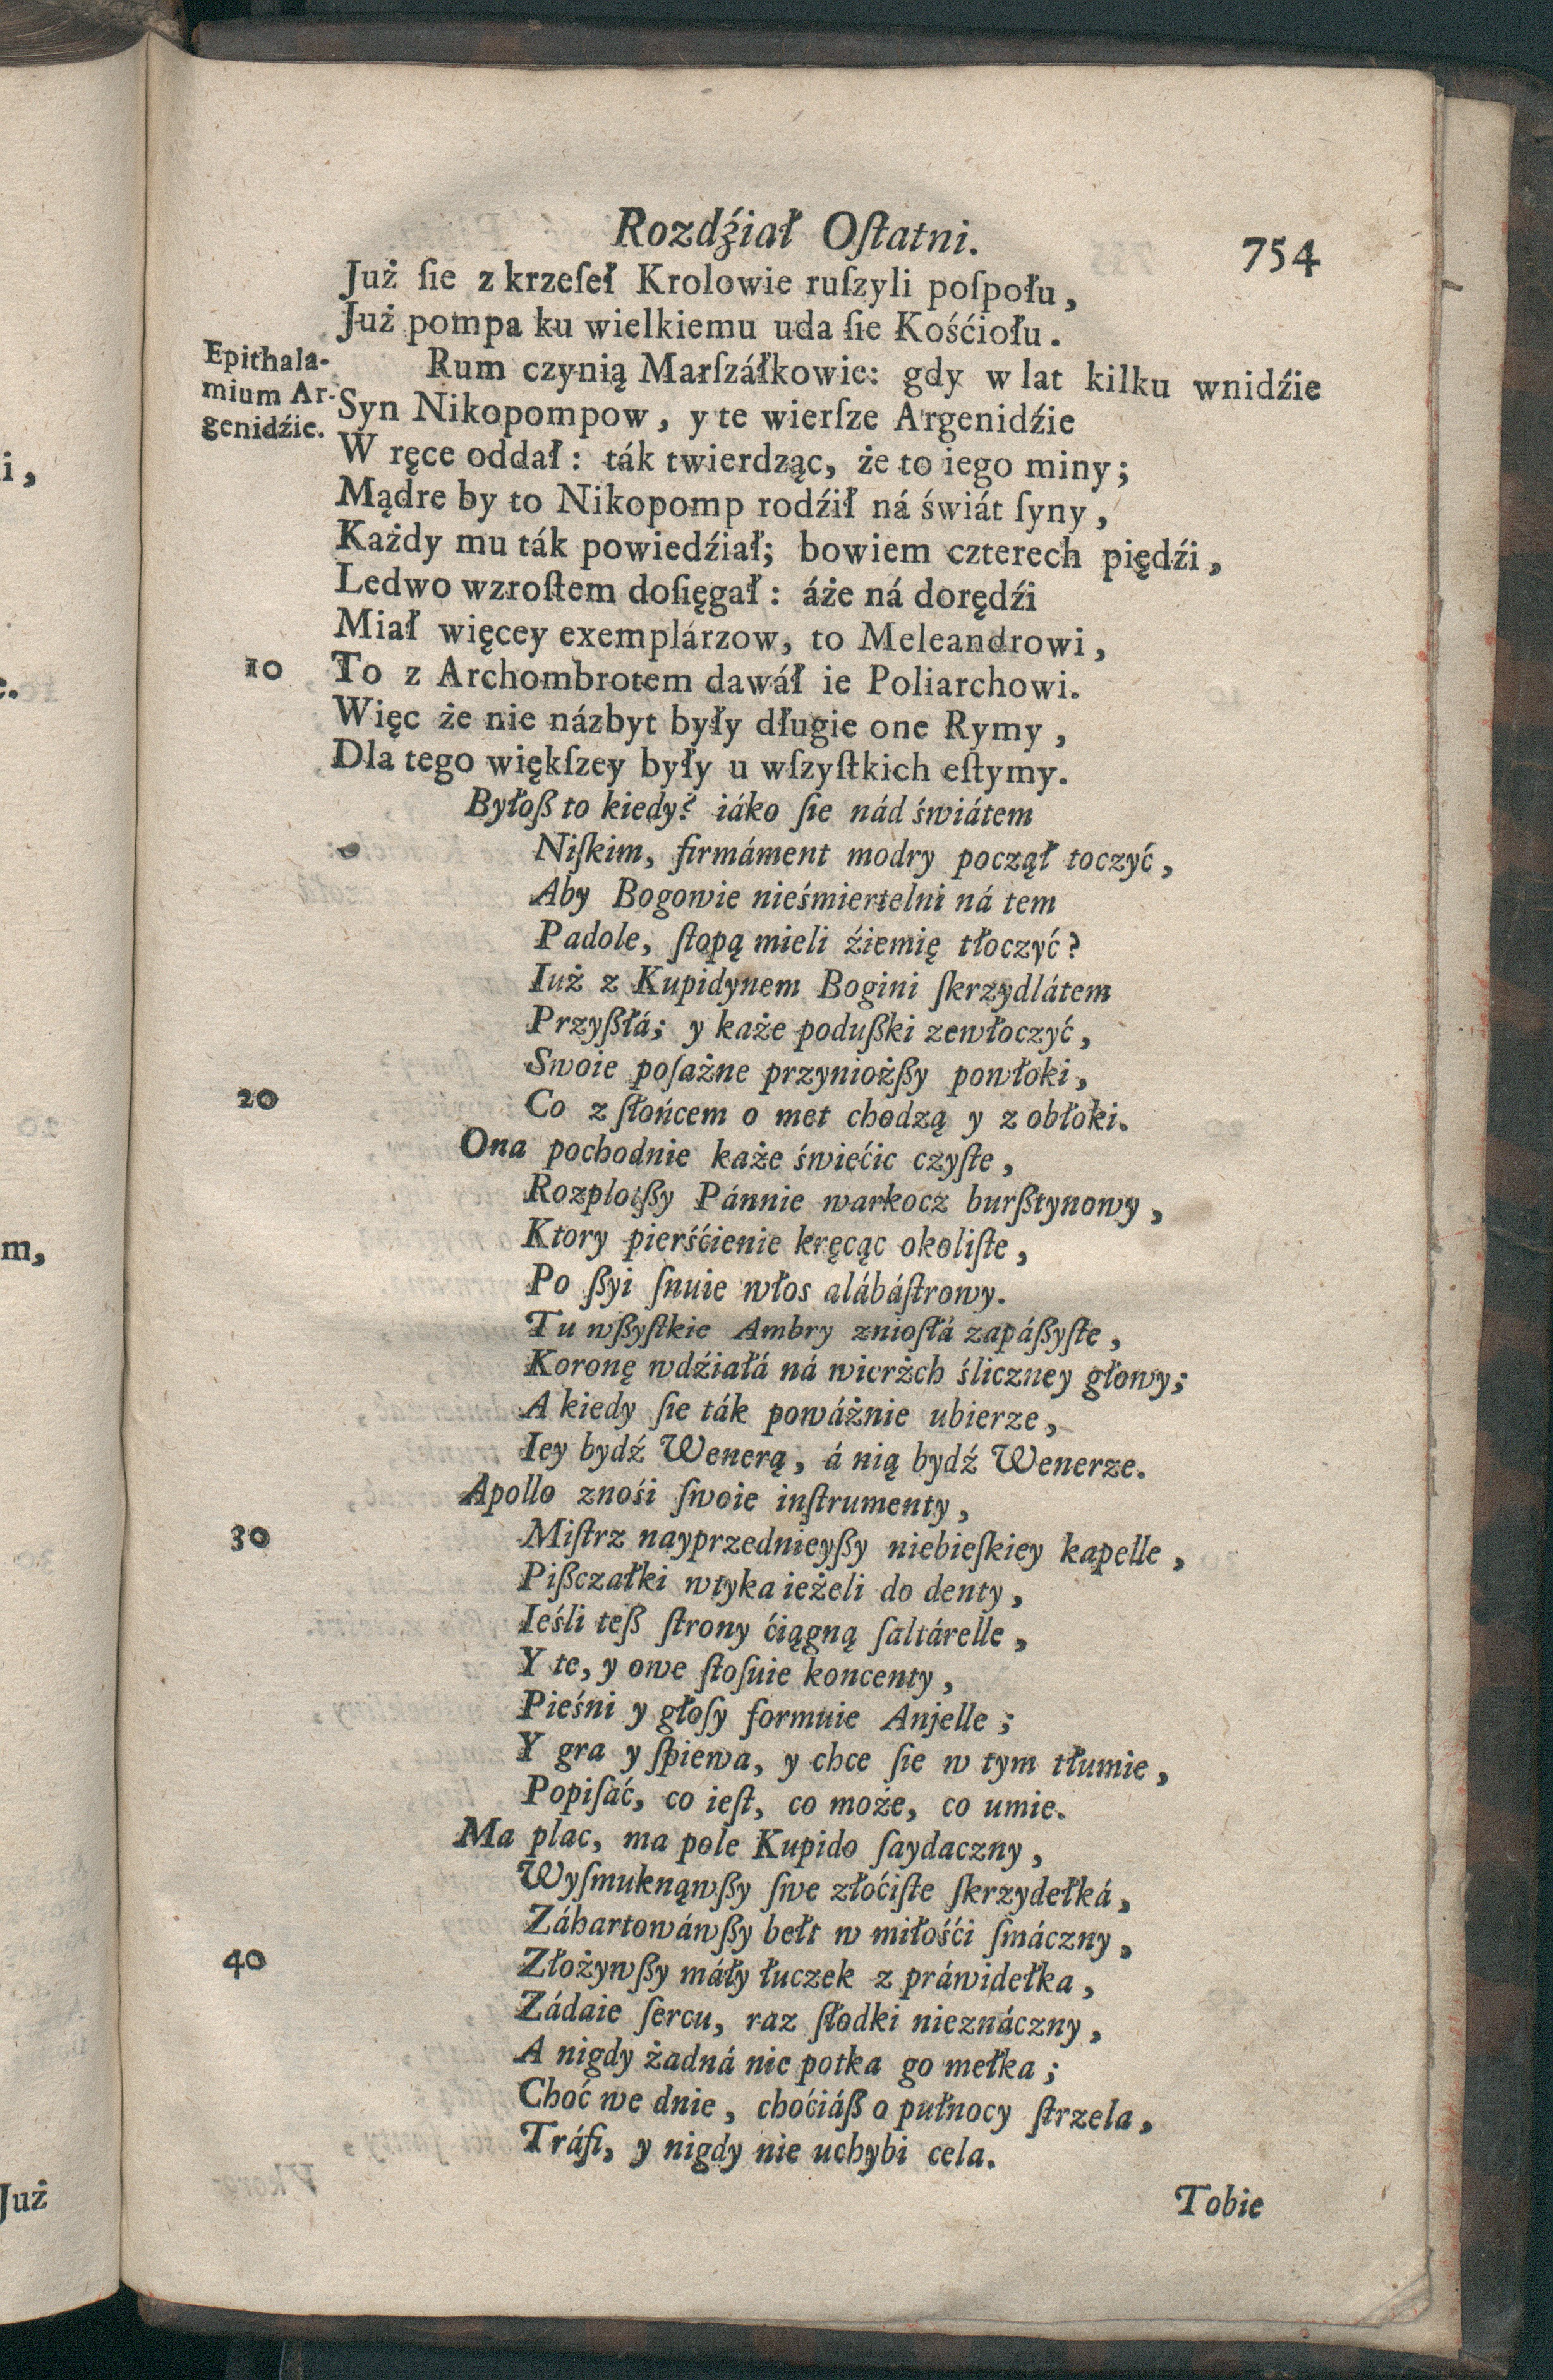 Rozdźiał Oſtatni. 754
Już ſie z krzeſeł Krolowie ruſzyli poſpołu,
Już pompa ku wielkiemu uda ſie Kośćiołu.
Epithala-
mium Ar-
genidźie.
Rum czynią Marſzáłkowie: gdy w lat kilku wnidźie
Syn Nikopompow, y te wierſze Argenidźie
W ręce oddał: ták twierdząc, że to iego miny;
Mądre by to Nikopomp rodźił ná świát ſyny,
Każdy mu ták powiedźiał; bowiem czterech piędźi,
Ledwo wzroſtem doſięgał: áże ná dorędźi
Miał więcey exemplárzow, to Meleandrowi,
10 To z Archombrotem dawáł ie Poliarchowi.
Więc że nie názbyt były długie one Rymy,
Dla tego więkſzey były u wſzyſtkich eſtymy.
Byłoß to kiedy? iáko ſie nád świátem
Niſkim, firmáment modry począł toczyć,
Aby Bogowie nieśmiertelni ná tem
Padole, ſtopą mieli źiemię tłoczyć?
Iuż z Kupidynem Bogini ſkrzydlátem
Przyßłá; y każe podußki zewłoczyć,
Swoie poſażne przyniożßy powłoki,
20 Co z ſłońcem o met chodzą y z obłoki.
Ona pochodnie każe świećic czyſte,
Rozplotßy Pánnie warkocz burßtynowy,
Ktory pierśćienie kręcąc okoliſte,
Po ßyi ſnuie włos alábáſtrowy.
Tu wßyſtkie Ambry znioſłá zapáßyſte,
Koronę wdźiałá ná wierżch śliczney głowy;
A kiedy ſie ták poważnie ubierze,
Iey bydź Wenerą, á nią bydź Wenerze.
Apollo znośi ſwoie inſtrumenty,
30 Miſtrz nayprzednieyßy niebieſkiey kapelle,
Pißczałki wtyka ieżeli do denty,
Ieśli teß ſtrony ćiągną ſaltárelle,
Y te, y owe ſtoſuie koncenty,
Pieśni y głoſy formuie Anjelle;
Y gra y ſpiewa, y chce ſie w tym tłumie,
Popiſać, co ieſt, co może, co umie.
Ma plac, ma pole Kupido ſaydaczny,
Wyſmuknąwßy ſwe złoćiſte ſkrzydełká,
Záhartowáwßy bełt w miłośći ſmáczny,
40 Złożywßy máły łuczek z práwidełka,
Zádaie ſercu, raz ſłodki nieznáczny,
A nigdy żadná nie potka go mełka;
Choć we dnie, choćiáß o pułnocy ſtrzela,
Tráfi, y nigdy nie uchybi cela.
Tobie
i,
m,
Już